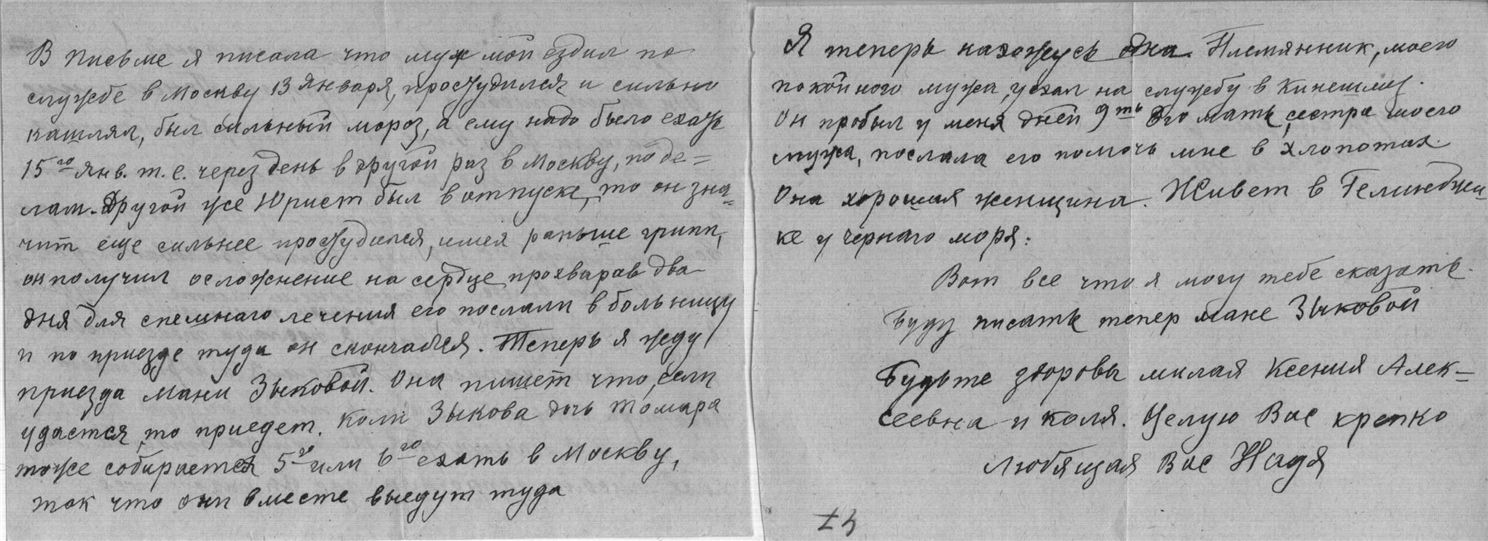 В письме я писала что муж мой ездил по
службе в Москву 13 Января, простудился и сильно
кашлял, был сильный мороз, а ему надо было ехать
15го Янв. т.е. через день в другой раз в Москву, по де=
лам. Другой же Юрист был в отпуске, то он зна=
чит еще сильнее простудился, имея раньше грипп,
он получил осложнение на сердце, прохварав два
дня для спешнаго лечения его послали в больницу
и по приезде туда он скончался. Теперь я жду
приезда Мани Зыковой. Она пишет что, если
удастся, то приедет. Коли Зыкова дочь Томара
тоже собирается 5го или 6го ехать в Москву,
так что они вместе выедут туда
Я теперь нахожусь одна. Племянник, моего
покойного мужа, уехал на службу в Кинешму.
Он пробыл у меня дней 9ть Его мать, сестра моего
мужа, послала его помочь мне в хлопотах.
Она хорошая женщина. Живет в Гелинджи=
ке у чернаго моря.
Вот все что я могу тебе сказать.
Буду писать тепер Мане Зыковой
Будьте здоровы милая Ксения Алек=
сеевна и Коля. Целую Вас крепко
любящая Вас Надя